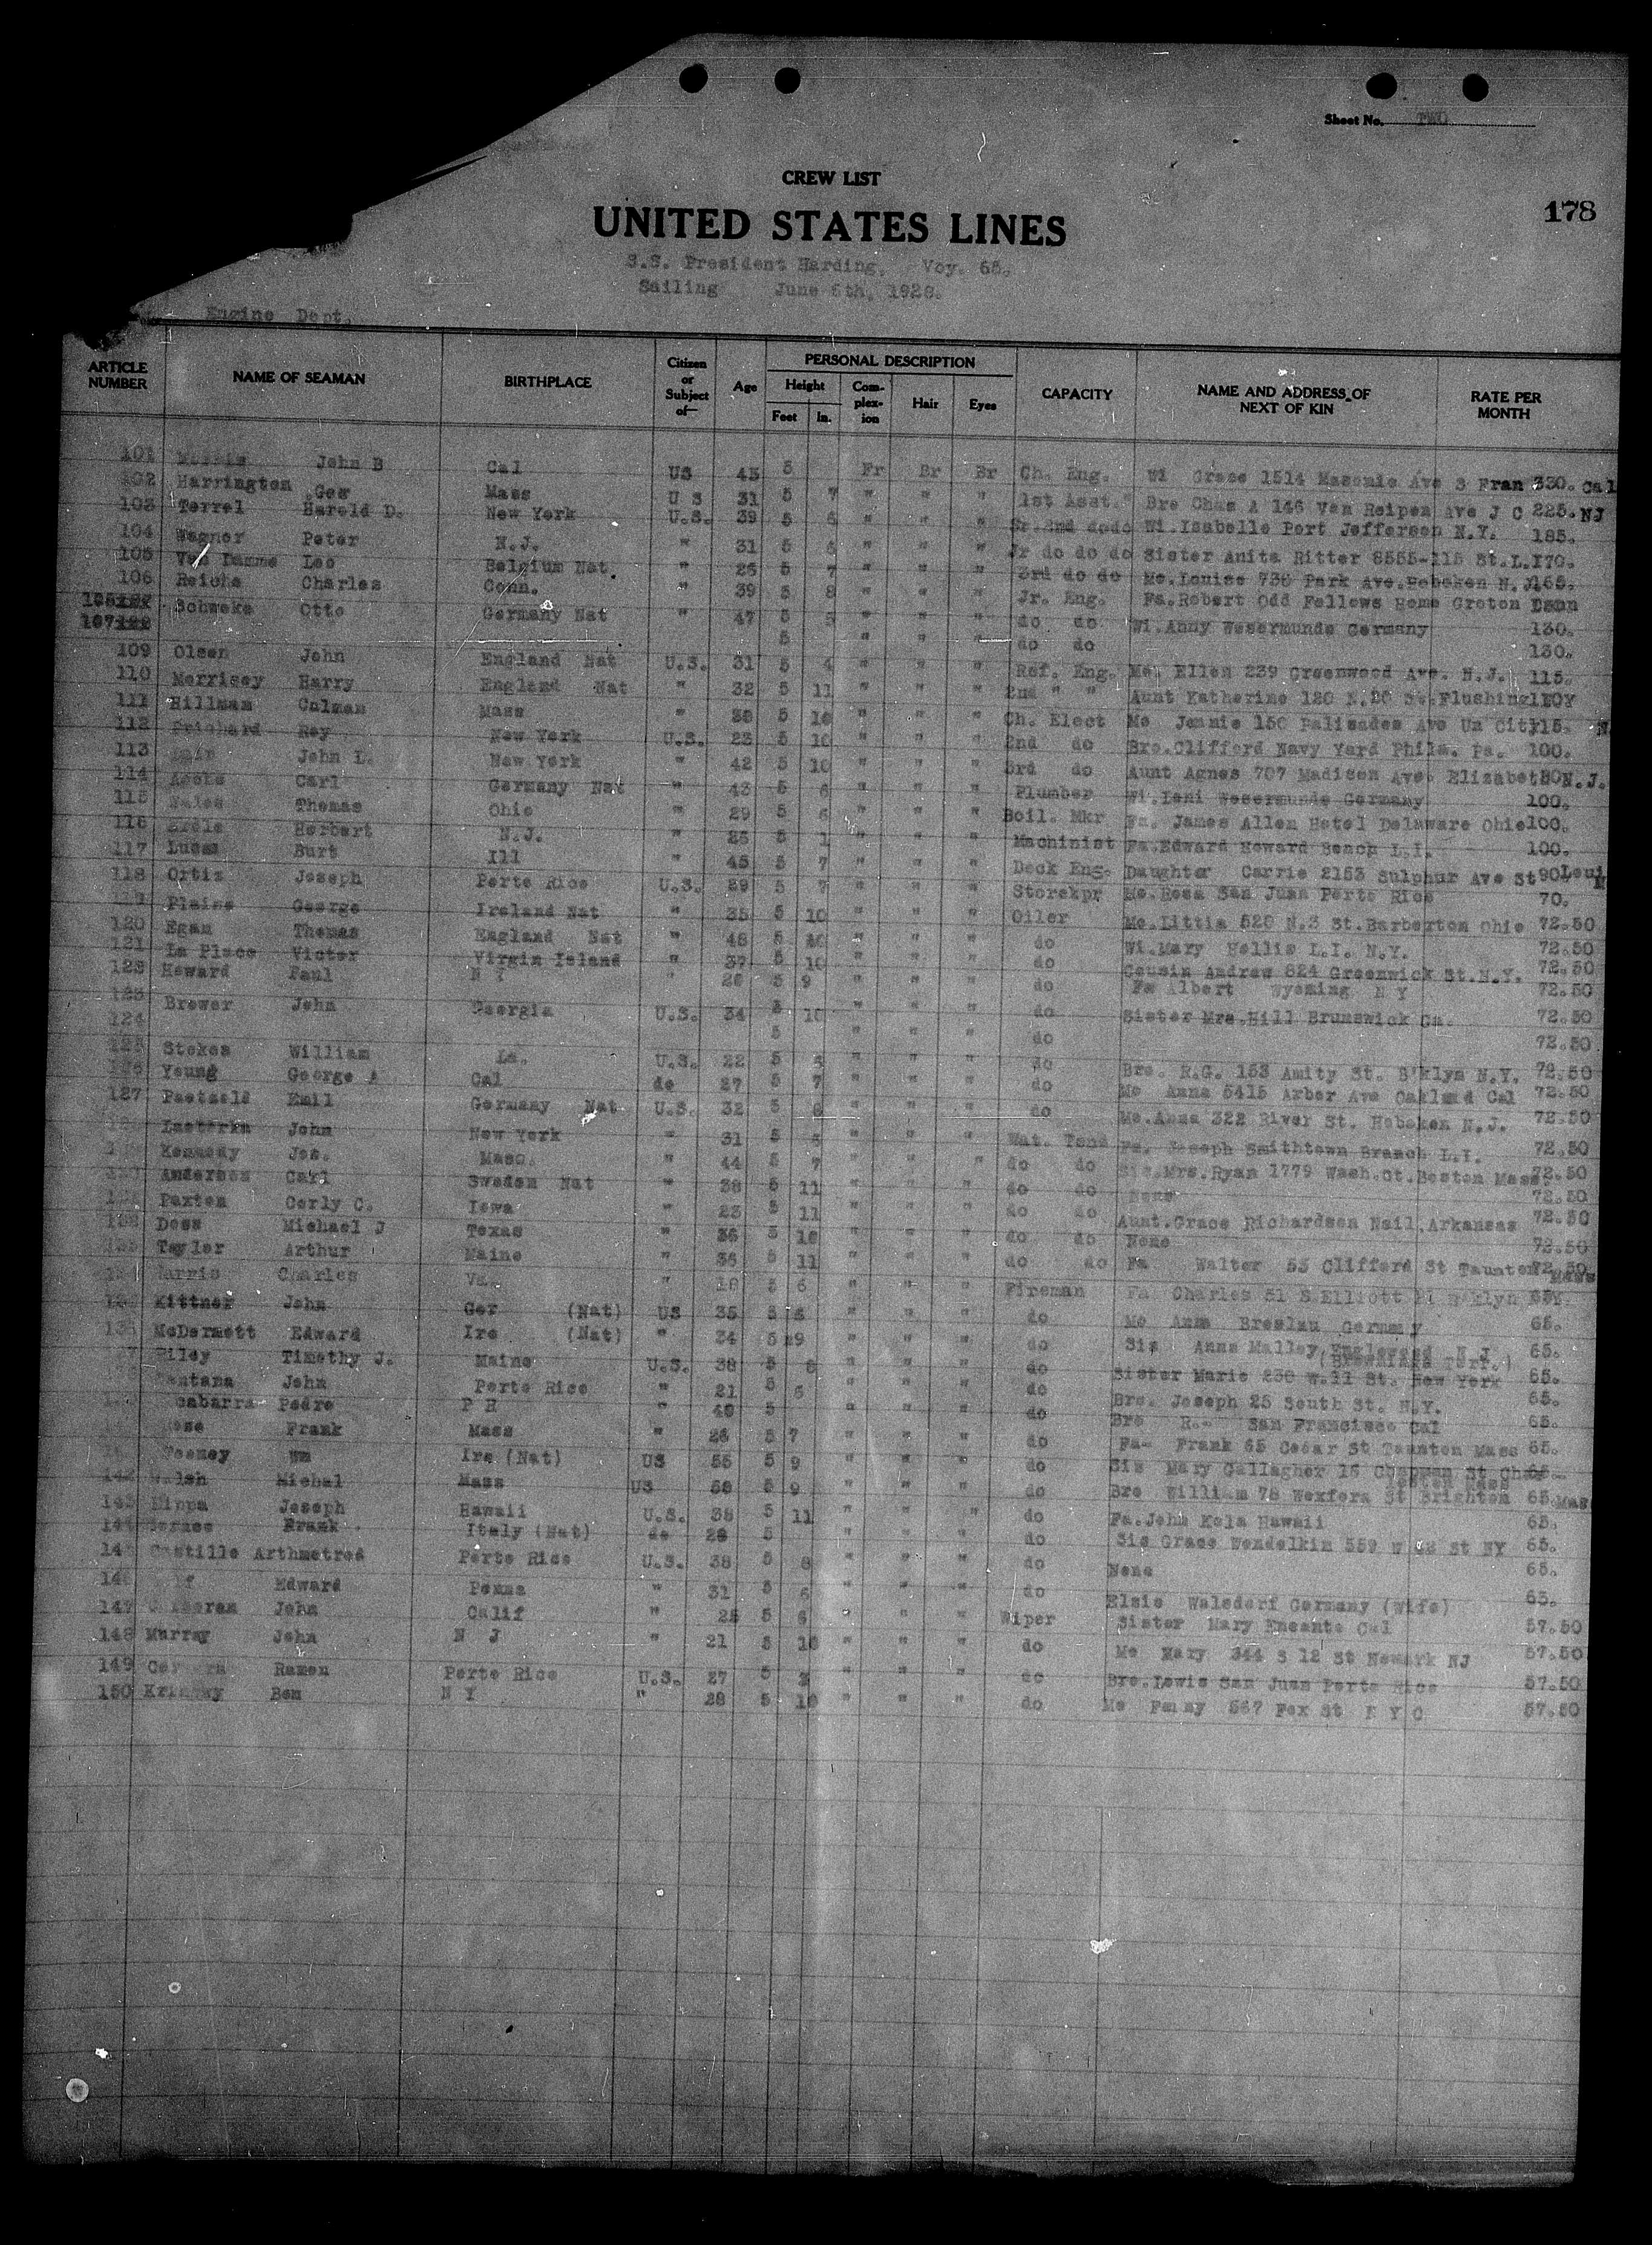 Sheet No. TWO
CREW LIST
178
UNITED STATES LINES
S.S. President Harding, Voy. 65.
Sailing June 6th, 1928.
Engine Dept.
ARTICLE NUMBER NAME OF SEAMAN BIRTHPLACE Citizen or Subject of— Age PERSONAL DESCRIPTION Height Feet In. Com-plex-ion Hair Eyes CAPACITY NAME AND ADDRESS OF NEXT OF KIN RATE PER MONTH
101 John B Cal US 43 5 Fr Br Br Ch. Eng. Wi Grace 1514 Masonic Ave S Fran 330. Cal
102 Harrington Geo Mass U S 31 5 7 " " " 1st Asst. " Bro Chas A 146 Van Reipen Ave J C 225. NJ
103 Terrel Harold D. New York U.S. 39 5 6 " " " Sr. 2nd dodo Wi. Isabelle Port Jefferson N.Y. 185.
104 Wagner Peter N.J. " 31 5 " " " Jr do do do Sister Anita Ritter 8555-115 St. L.I 170.
105 Van Damme Leo Belgium Nat " 26 5 7 " " " 3rd do do Mo. Louise 736 Park Ave. Hoboken N. J. 165.
106 Reiche Charles Conn. " 39 5 8 " " " Jr. Eng. Fa. Robert Odd Fellows Home Groton Conn
Schweke Otto Germany Nat " 47 5 5 " " " do do Wi. Anny Wesermunde Germany 130.
5 " " " do do 130.
109 Olsen John England Nat U.S. 31 5 4 " " " Ref. Eng. Mo. Ellen 239 Greenwood Ave. N.J. 115.
110 Morrisey Harry England Nat " 32 5 11 " " " 2nd " " Aunt Katherine 120 N. 20 St. Flushing
111 Hillman Colman Mass " 5 10 " " " Ch. Elect Mo Jennie 150 Palisades Ave Un City 115. N.
112 Prichard Roy New York U.S. 23 5 10 " " " 2nd do Bro. Clifford Navy Yard Phila. Pa. 100.
113 John L. New York " 42 5 10 " " " 3rd do Aunt Agnes 707 Madison Ave. Elizabet 90 N.J.
114 Carl Germany Nat " 43 5 6 " " " Plumber Wi. Wesermunde Germany 100.
115 Thomas Ohio " 29 5 6 " " " Boil. Mkr Fa. James Allen Hotel Delaware Ohio 100.
116 Herbert N.J. " 25 5 1 " " " Machinist Fa. Edward Howard Beach L.I. 100.
117 Lucas Burt Ill " 45 5 7 " " " Deck Eng. Daughter Carrie 2153 Sulphur Ave St 90 Loui
118 Ortiz Joseph Porto Rico U.S. 29 5 7 " " " Storekpr Mo. Rosa San Juan Porto Rico 70.
George Ireland Nat " 35 5 10 " " " Oiler Mo. Littia 520 N. 3 St. Barberton Ohio 72.50
120 Egan Thomas England Nat " 48 5 10 " " " do Wi. Mary Hollis L.I. N.Y. 72.50
121 La Place Victor Virgin Island " 37 5 10 " " " do Cousin Andrew 824 Greenwick St. N.Y. 72.50
Howard Paul N Y " 26 5 9 " " " do Fa Albert Wyoming N Y 72.50
123 Brewer John Georgia U.S. 34 5 10 " " " do Sister Mrs. Hill Brunswick Ga. 72.50
124 5 " " " do 72.50
125 Stokes William La. U.S. 22 5 " " " do Bro. R.G. 153 Amity St. B'klyn N.Y. 72.50
Young George A Cal do 27 5 7 " " " do Mo Anna 5415 Arbor Ave Oakland Cal 72.50
127 Paetzold Emil Germany Nat U.S. 32 5 " " " do Mo. Anna 322 River St. Hoboken N.J. 72.50
John New York " 31 5 5 " " " Wat. Tend Fa. Joseph Smithtown Branch L.I. 72.50
Kennedy Jos. Mass. " 44 5 7 " " " do do Sis. Mrs. Ryan 1779 Wash. St. Boston Mass 72.50
Anderson Carl Sweden Nat " 38 5 11 " " " do do None 72.50
Paxton Corly C. Iowa " 23 5 11 " " " do do Aunt. Grace Richardson Nail. Arkansas 72.50
Doss Michael J Texas " 36 5 10 " " " do do None 72.50
Taylor Arthur Maine " 36 5 11 " " " do do Fa Walter 53 Clifford St Taunton 72.50 Mass
Harris Charles Va. " 5 6 " " " Fireman Fa Charles 51 S Elliott Pl B'klyn
Kittner John Ger (Nat) US 35 5 " " " do Mo Anna Breslau Germany 65.
McDermott Edward Ire (Nat) " 34 5 9 " " " do Sis Anna Malley Englewood N J 65.
Riley Timothy J. Maine U.S. 38 5 " " " do Sister Marie 230 W. 11 St. New York 65.
Santana John Porto Rico " 21 5 6 " " " do Bro. Joseph 25 South St. N.Y. 65.
Pedro P R " 5 " " " do Bro San Francisco Cal 65.
Rose Frank Mass " 26 5 7 " " " do Fa- Frank 65 Cedar St Taunton Mass 65.
Wm Ire (Nat) US 55 5 9 " " " do Sis Mary Gallagher 16 Chapman St
142 Walsh Michal Mass US 5 9 " " " do Bro William 78 Wexford St Brighton 65. Mas
143 Joseph Hawaii U.S. 38 5 11 " " " do Fa. John Kola Hawaii 65.
144 Frank Italy (Nat) do 5 " " " do Sis Grace Wendelkin 559 W St NY 65.
Castillo Arthmetred Porto Rico U.S. 38 5 8 " " " do None 65.
Edward Penna " 31 5 6 " " " do Elsie Walsdorf Germany (wife)
147 John Calif " 5 6 " " " Wiper Sister Mary Encanto Cal 57.50
148 Murray John N J " 21 5 10 " " " do Mo Mary 344 S 12 St Newark NJ 57.50
149 Ramon Porto Rico U.S. 27 5 " " " do Bro. Lewis San Juan Porto Rico 57.50
150 Krinsky Ben N Y " 28 5 10 " " " do Mo Fanny 567 Fox St N Y C 57.50